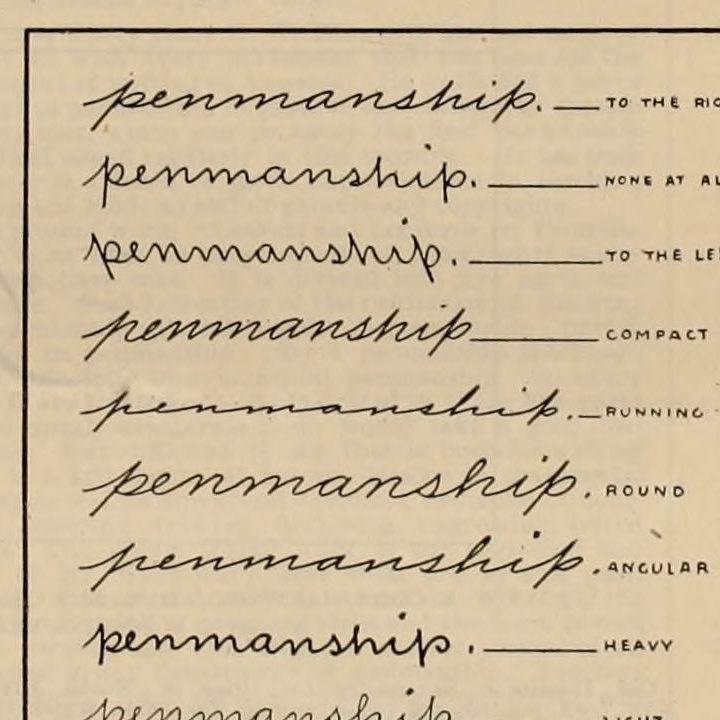 penmanship. TO THE
penmanship. NONE AT
penmanship. TO THE
penmanship COMPACT
penmanship. RUNNING
penmanship. ROUND
penmanship. ANGULAR
penmanship. HEAVY
penmanship LIGHT